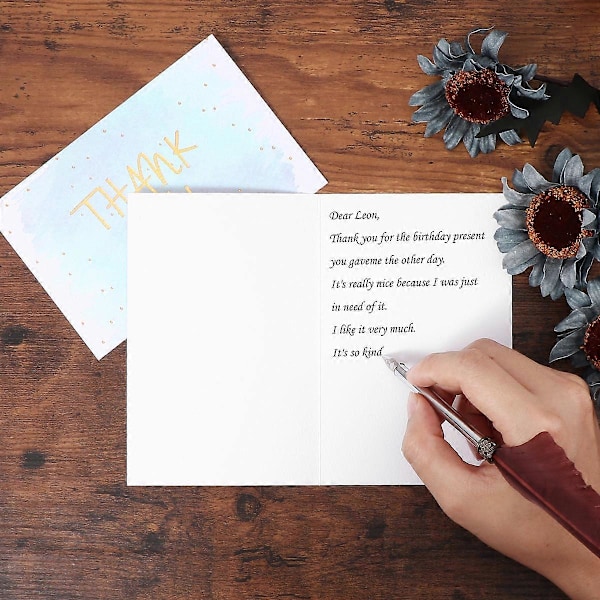 THANK
Dear Leon,
Thank you for the birthday present
you gaveme the other day.
It's really nice because I was just
in need of it.
I like it very much.
It's so kind